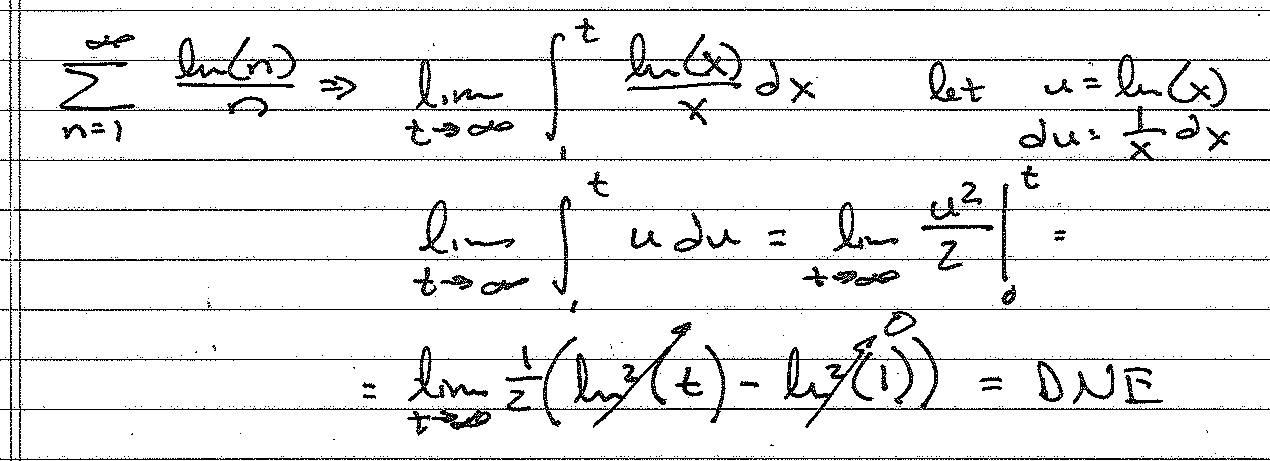 ∑_{n=1}^{∞} ln(n)/n ⇒ lim_{t→∞} ∫_{1}^{t} ln(x)/x dx let u = ln(x)
du = 1/x dx
lim_{t→∞} ∫_{1}^{t} u du = lim_{t→∞} u²/2 |_{0}^{t} =
= lim_{t→∞} 1/2 (ln²(t) - ln²(1)) 0 = DNE